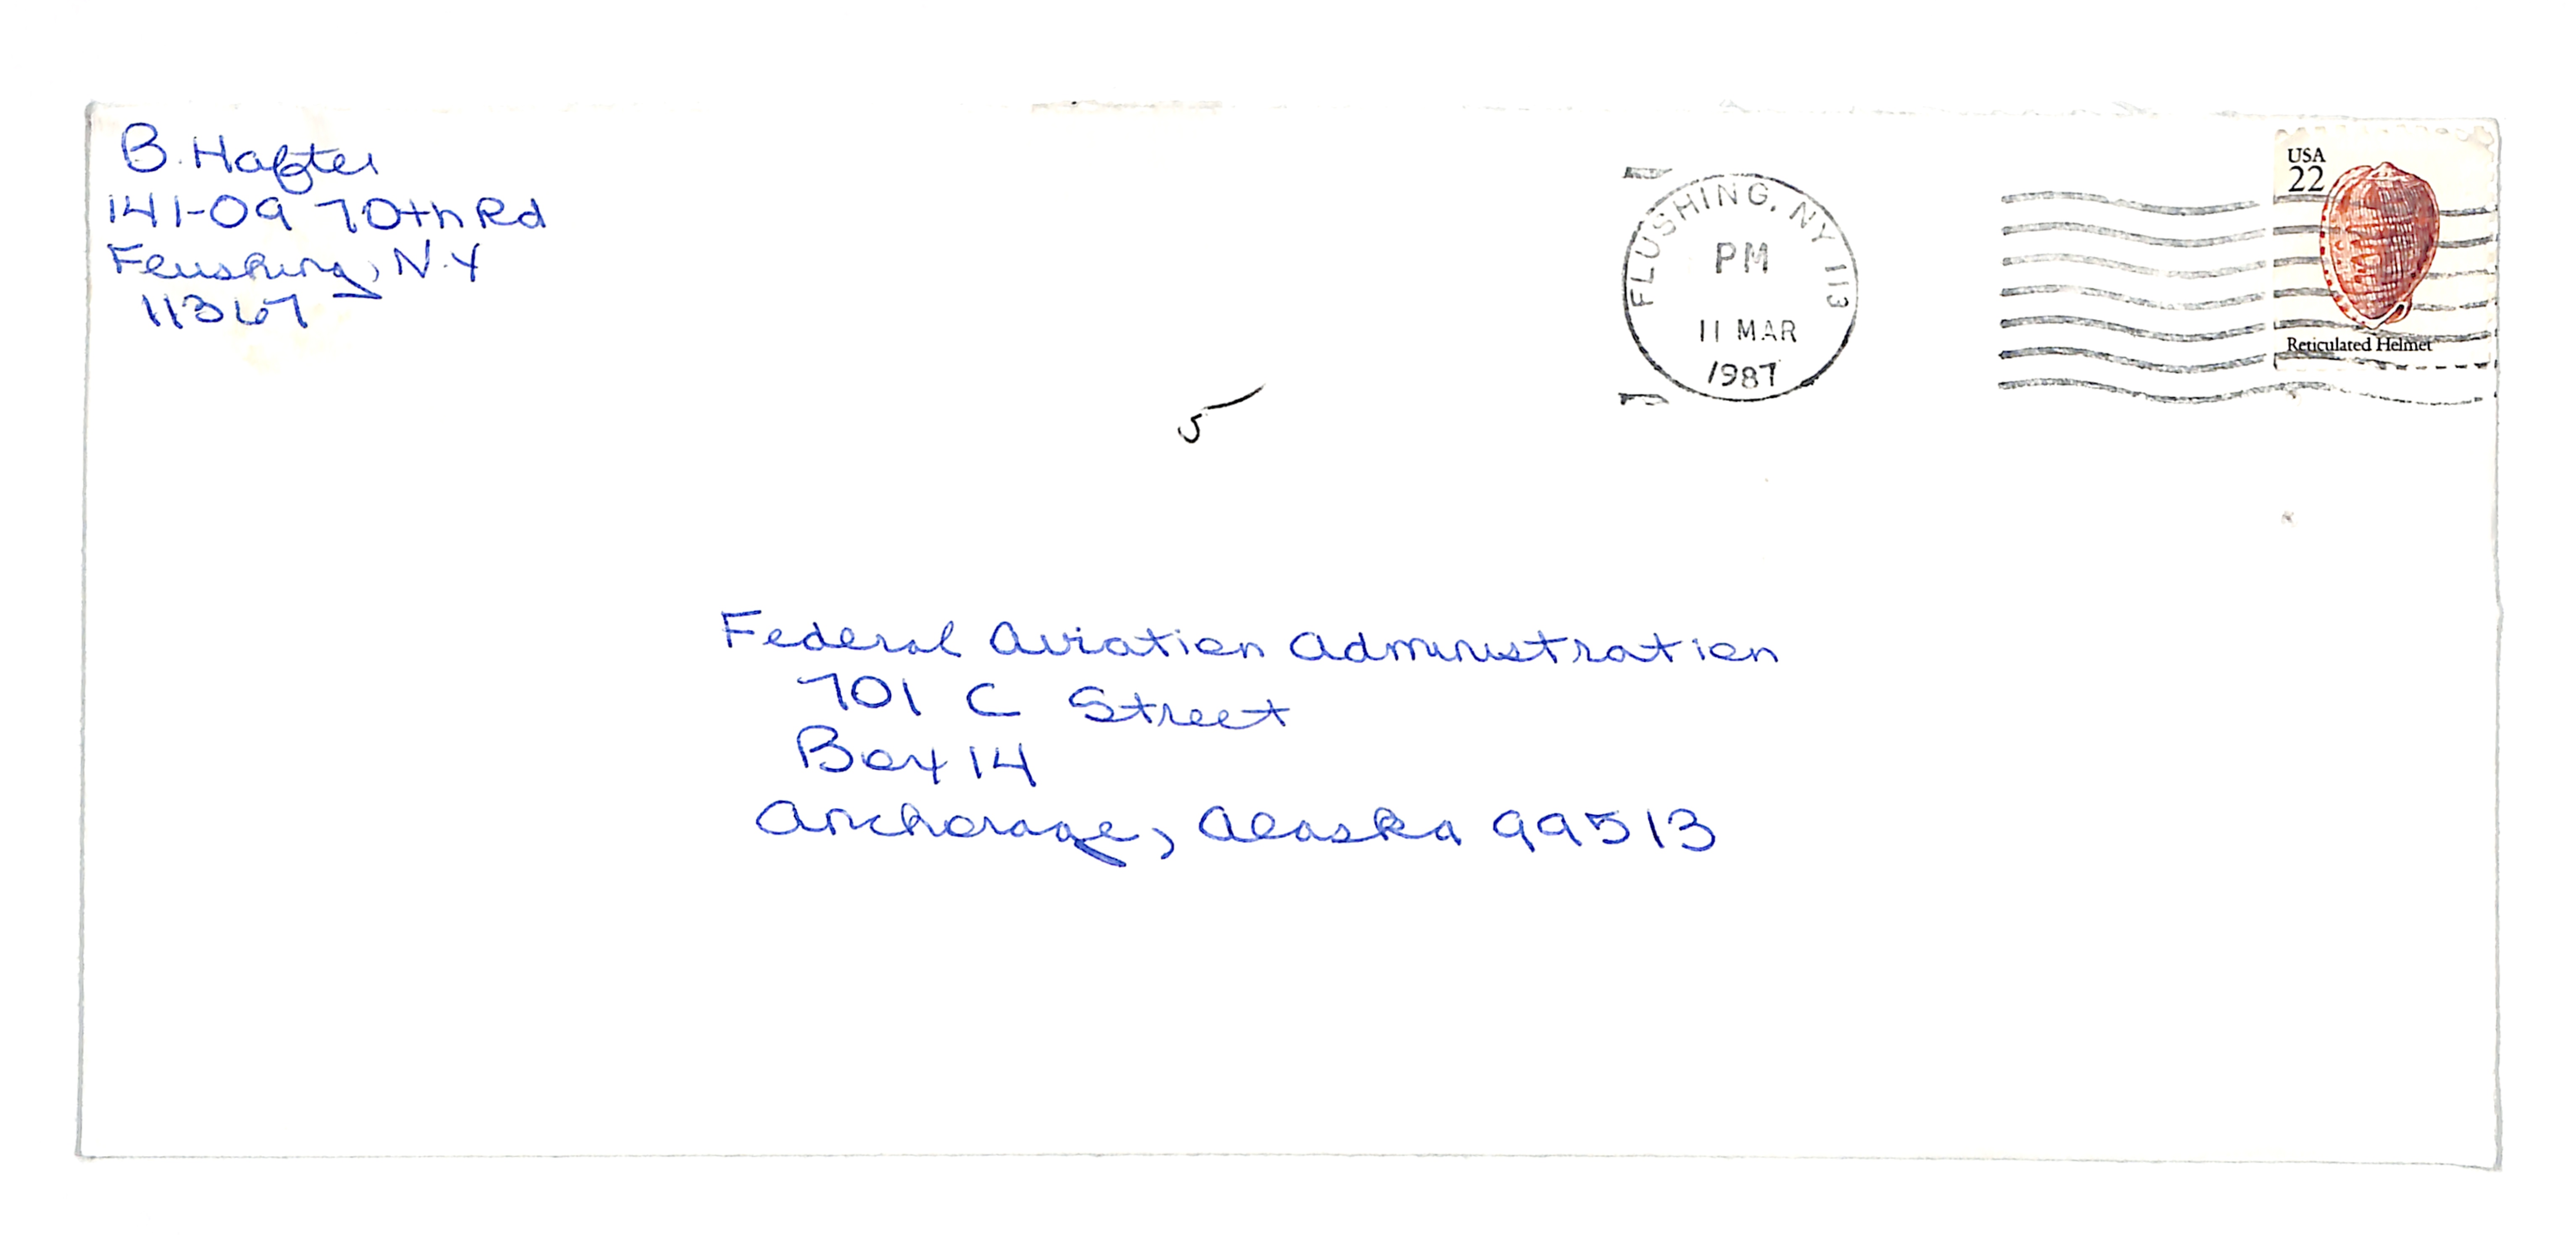 B. Hafter
141-09 70th Rd
Flushing, N.Y
11367
FLUSHING, NY 113
PM
11 MAR
1987
USA
22
Reticulated Helmet
5
Federal Aviation Administration
701 C Street
Box 14
Anchorage, Alaska 99513